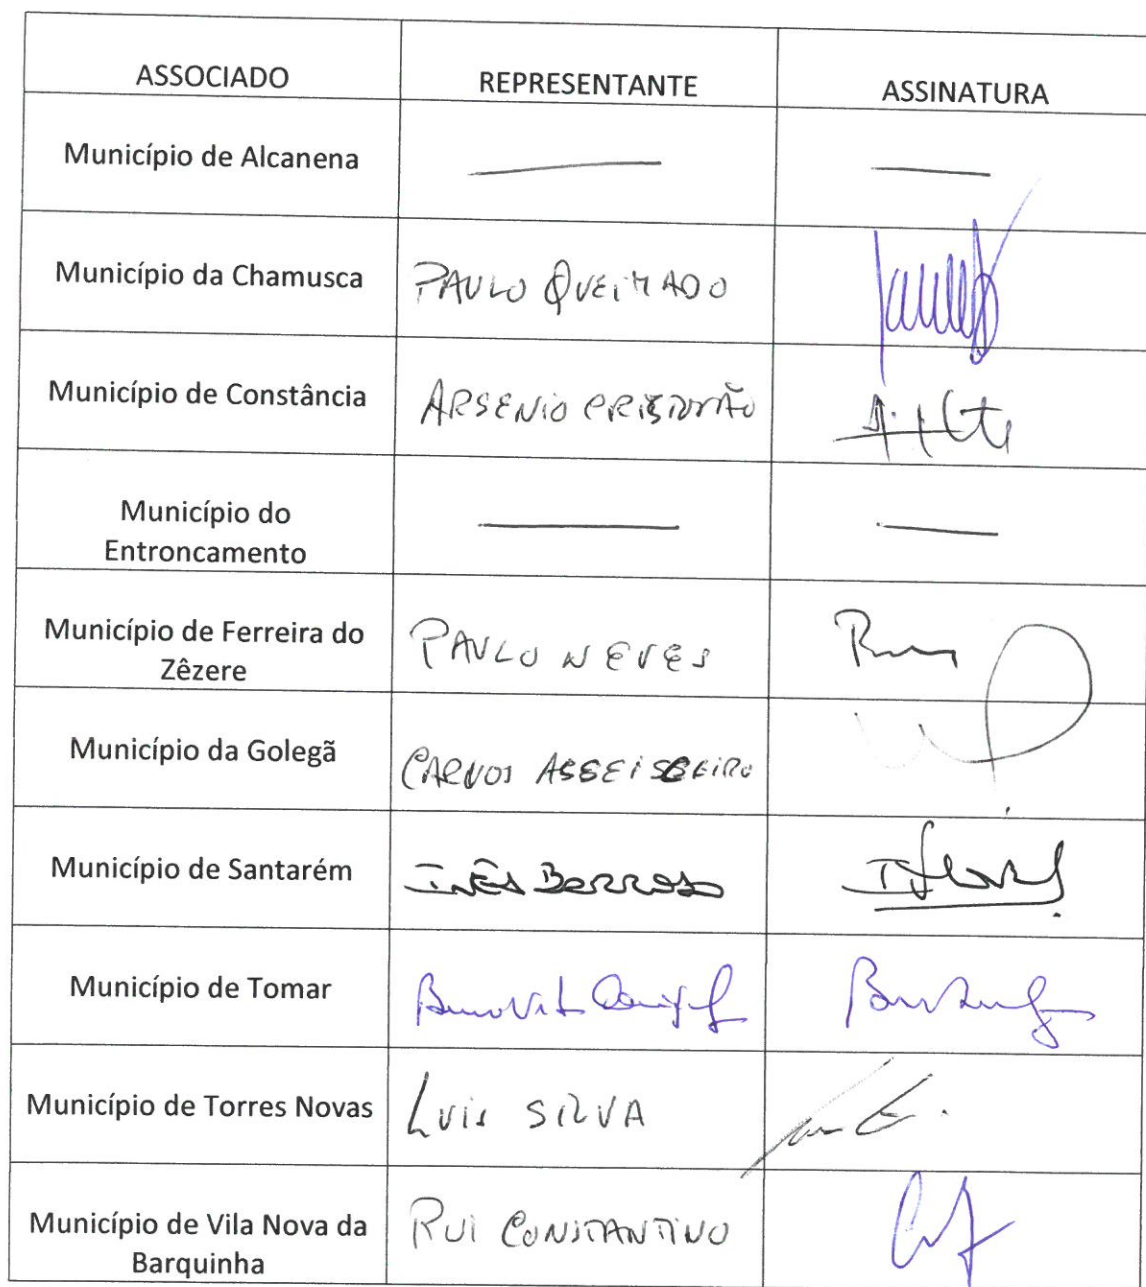 ASSOCIADO REPRESENTANTE ASSINATURA
Município de Alcanena
Município da Chamusca PAULO QUEIMADO
Município de Constância ARSENIO CRISTOVÃO
Município do
Entroncamento
Município de Ferreira do
Zêzere PAULO NEVES
Município da Golegã CARLOS ASSEISSEIRO
Município de Santarém INÊS BARROSO
Município de Tomar
Município de Torres Novas LUIS SILVA
Município de Vila Nova da
Barquinha RUI CONSTANTINO